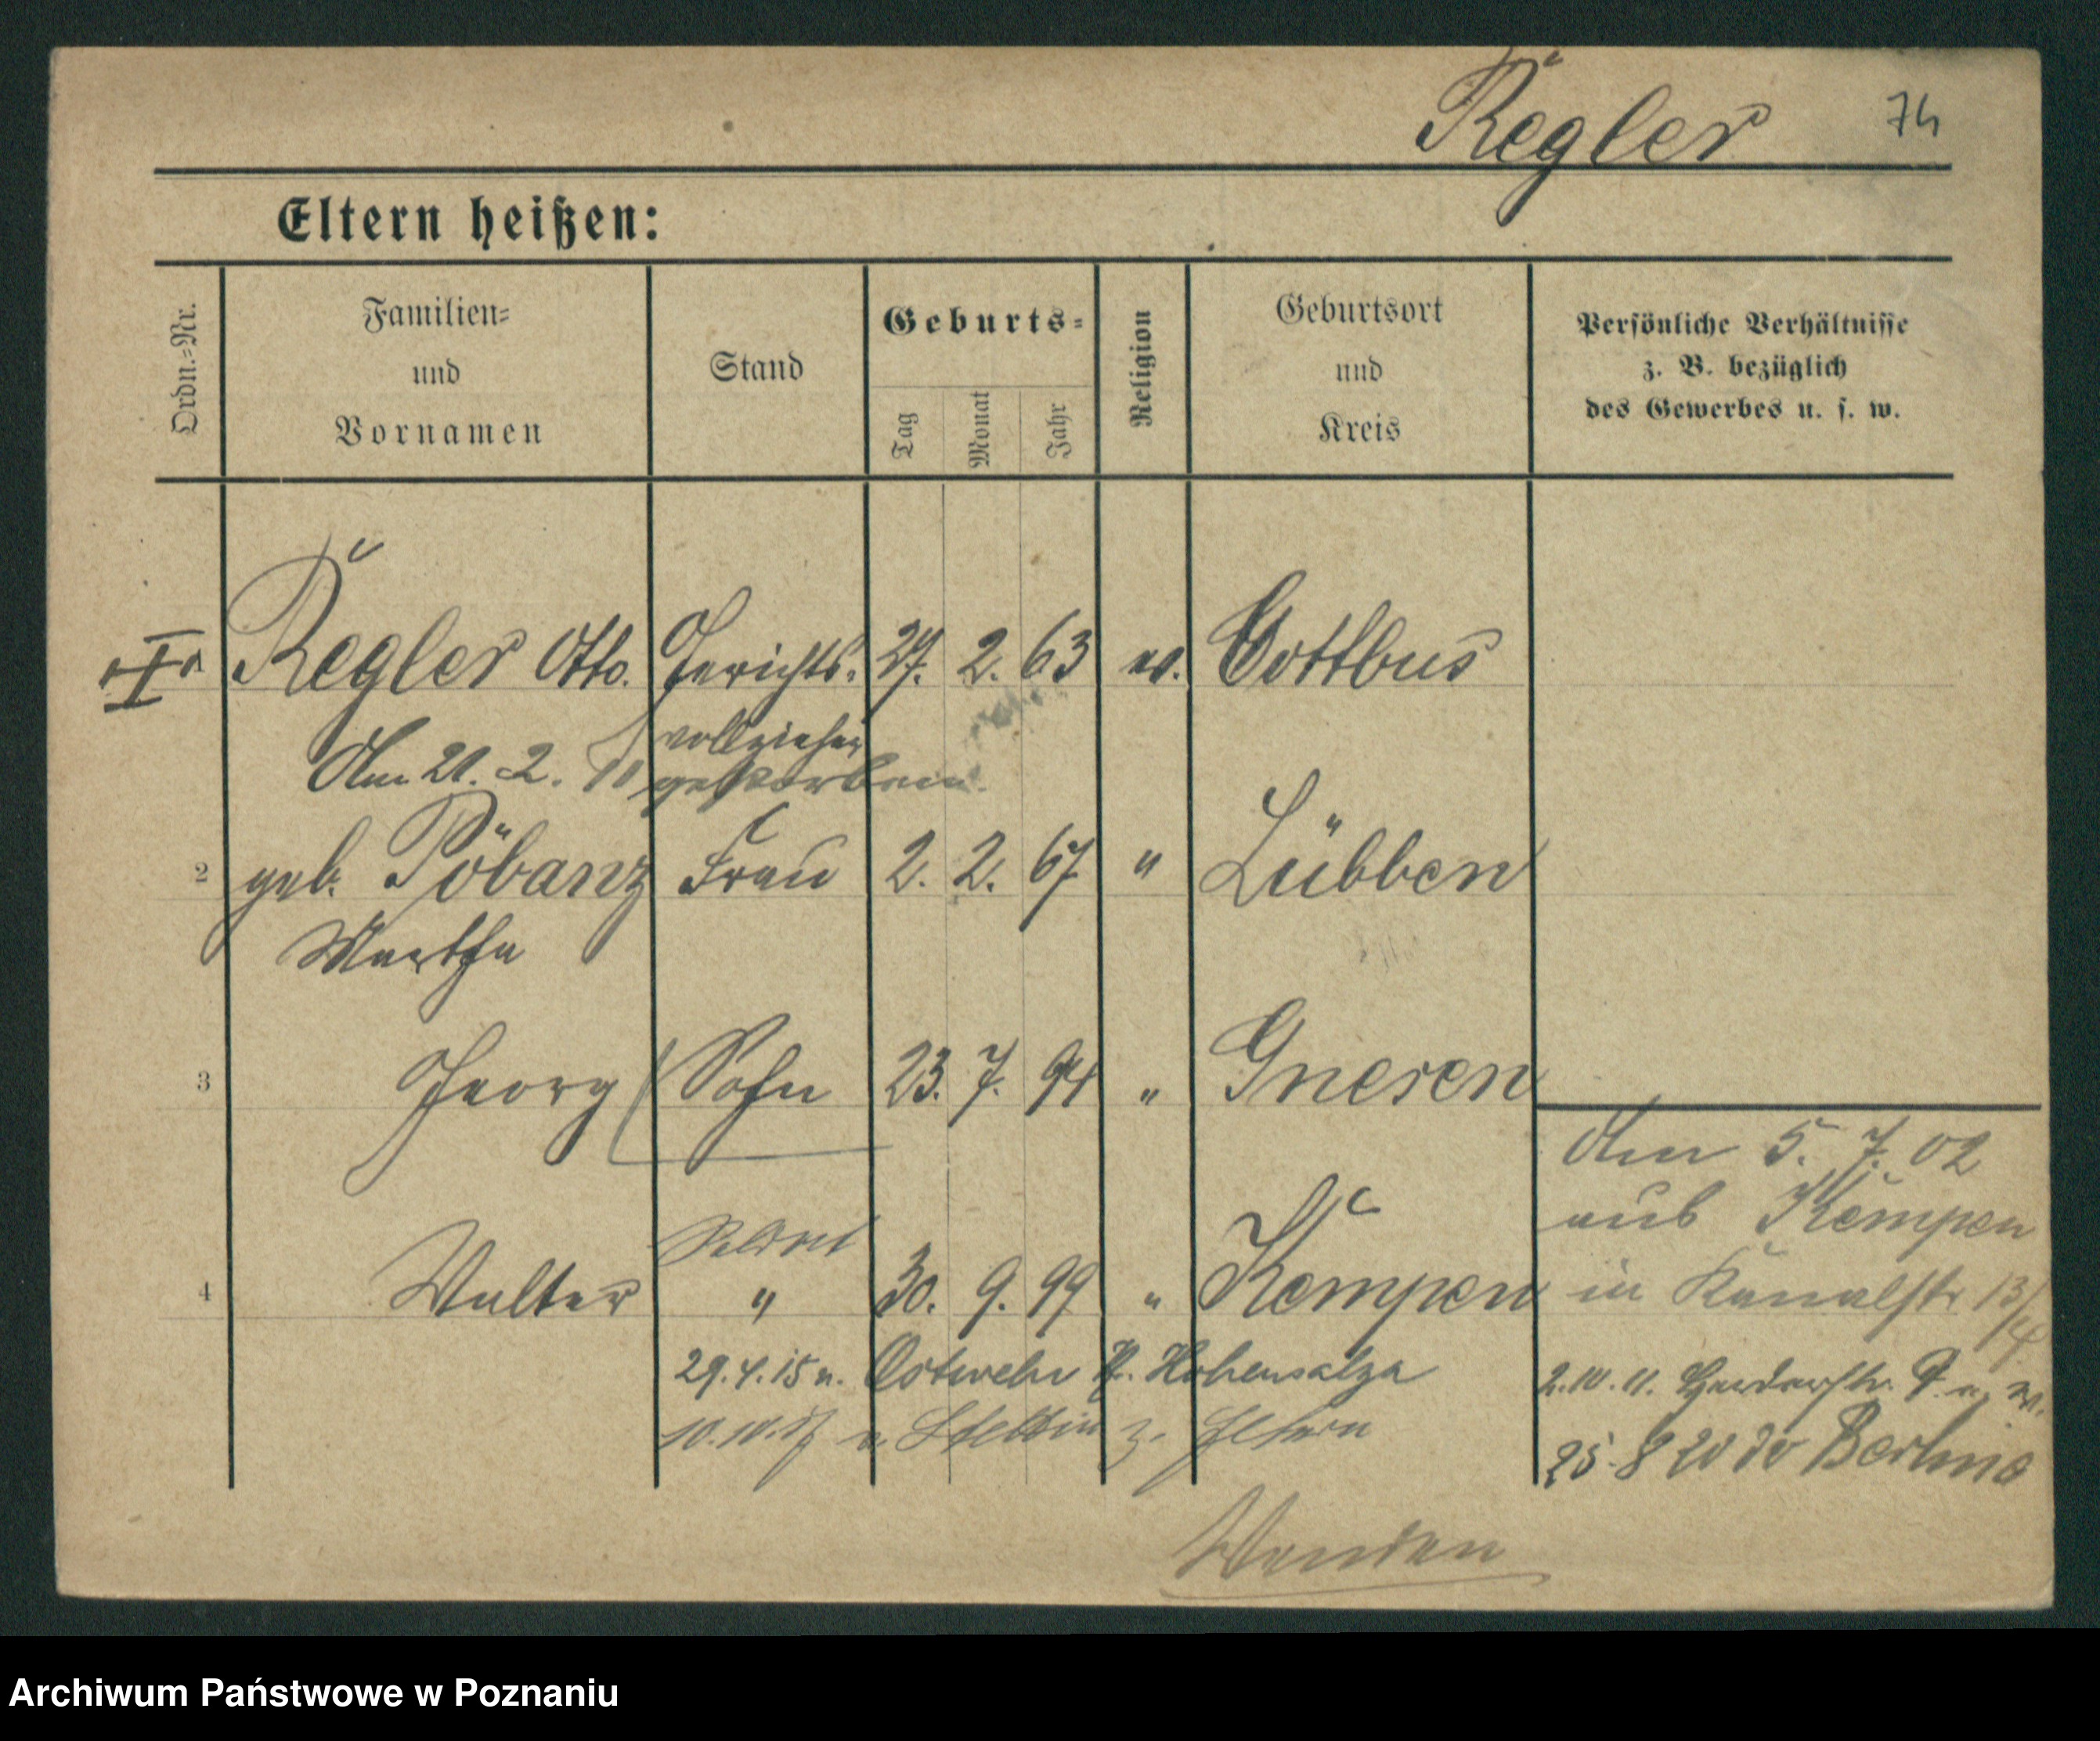 Regler 74
Eltern heißen:
Ordn.=Nr.
Familien=
und
Vornamen
Stand
Geburts=
Tag
Monat
Jahr
Religion
Geburtsort
und
Kreis
Persönliche Verhältnisse
z. B. bezüglich
des Gewerbes u. s. w.
I Regler Otto. Gerichts- 27. 2. 63 ev. Cottbus
vollzieher
Am 21. 2. gestorben.
2 geb. Pöbanz Frau 2. 2. 67 " Lübben
Martha
3 Georg Sohn 23. 7. 94 " Gnesen
Am 5. 7. 02
aus Kempen
in Kanalstr 13/
Soldat
4 Walter " 30. 9. 99 " Kempen
29.4.15 n. Ostwehr Hohensalza
n. Stettin z. Eltern
2.10.11. Herderstr. 9.
25.8 20 Berlin
Wenden
Archiwum Państwowe w Poznaniu